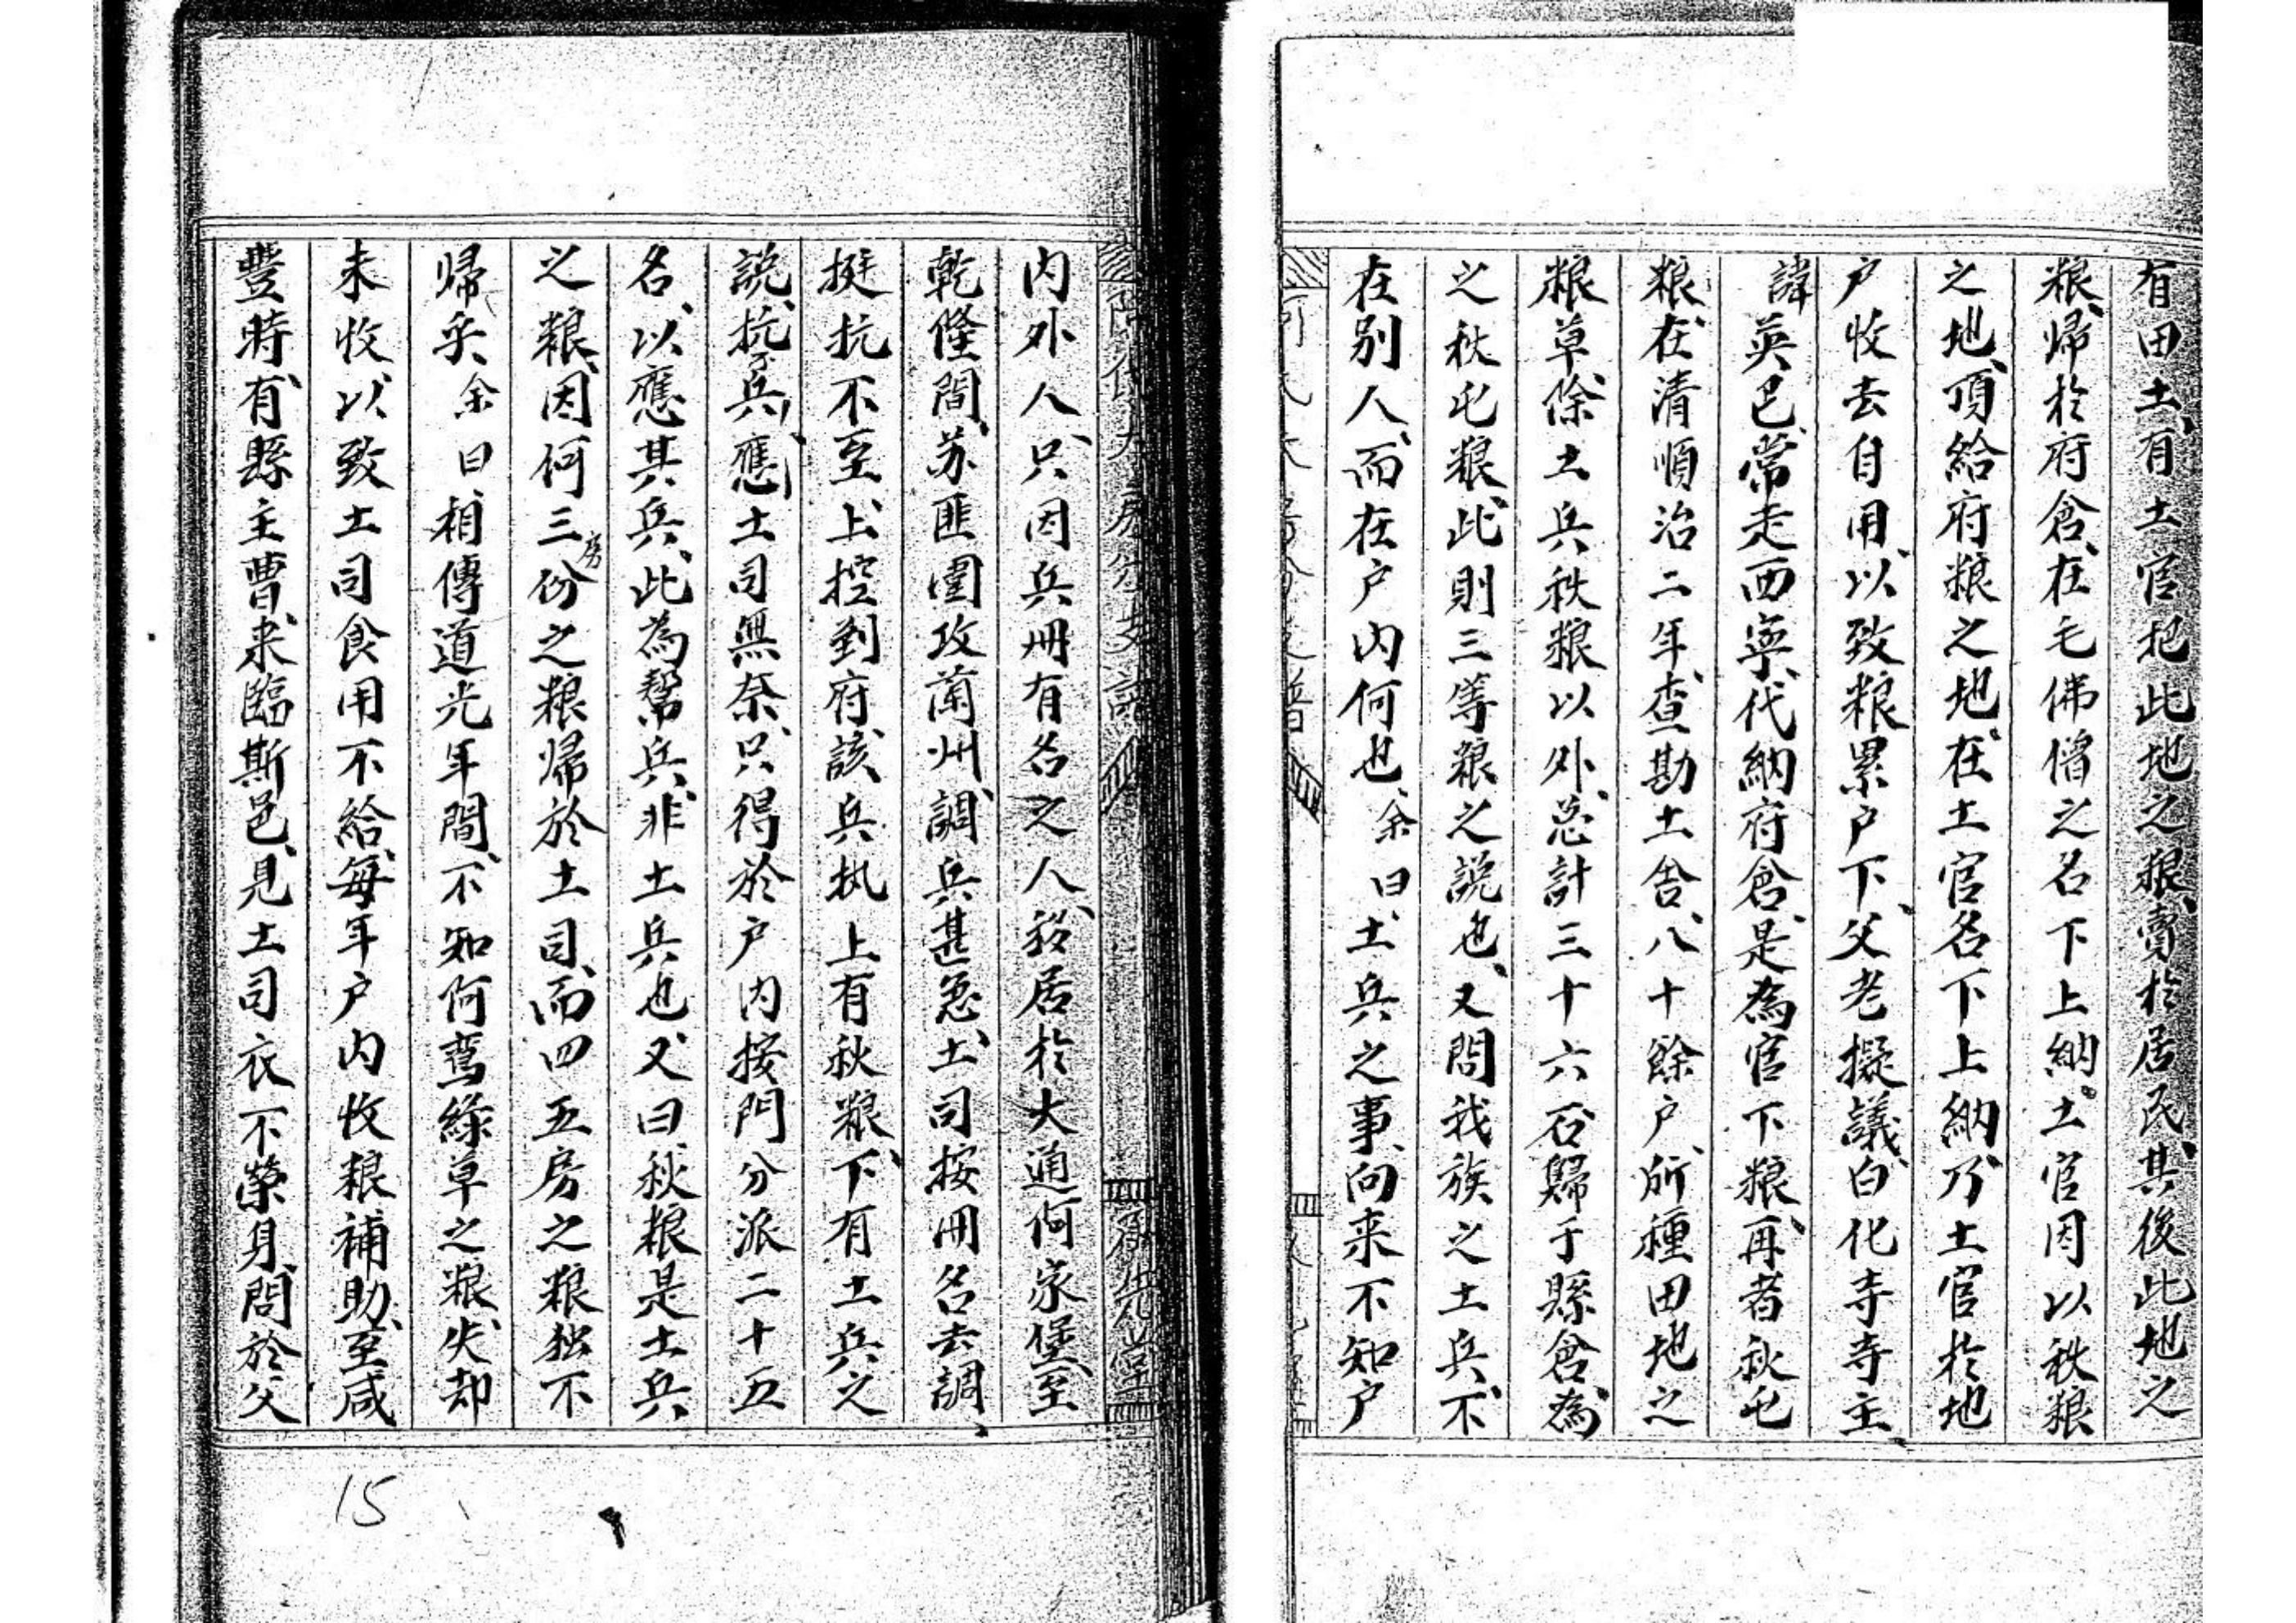 有田土、有土官把此地之粮、賣於居民、其後此地之
粮、帰於府倉、在毛佛僧之名下上納。土官因以秋粮
之地、頂給府粮之地、在土官名下上納、乃土官於地
户收去自用、以致粮累户下、父老擬議、白化寺寺主
諱英巴、常走西寧、代納府倉、是為官下粮、再者秋屯
粮、在清順治二年、查勘土舍、八十餘户、所種田地之
粮草、除土兵秋粮以外、总計三十六石、歸于縣倉、為
之秋屯粮、此則三等粮之說也、又問我族之土兵、不
在别人、而在户内何也、余曰、土兵之事、向来不知户
内外人、只因兵冊有名之人、移居於大通何家堡、至
乾隆間、苏匪圍攻蘭州、調兵甚急、土司按冊名去調、
挺抗不至、上控到府、該兵执上有秋粮、下有土兵之
說、抗不兵應、土司無奈、只得於户内按門分派二十五
名、以應其兵、此為幫兵、非土兵也、又曰秋粮是土兵
之粮、因何三房份之粮帰於土司、而四五房之粮独不
帰乎、余曰、相傳道光年間、不知何鸾綠草之粮、失却
未收、以致土司食用不給、每年户内收粮補助、至咸
豐時、有縣主曹、来臨斯邑、見土司衣不榮身、問於父
承先堂
15